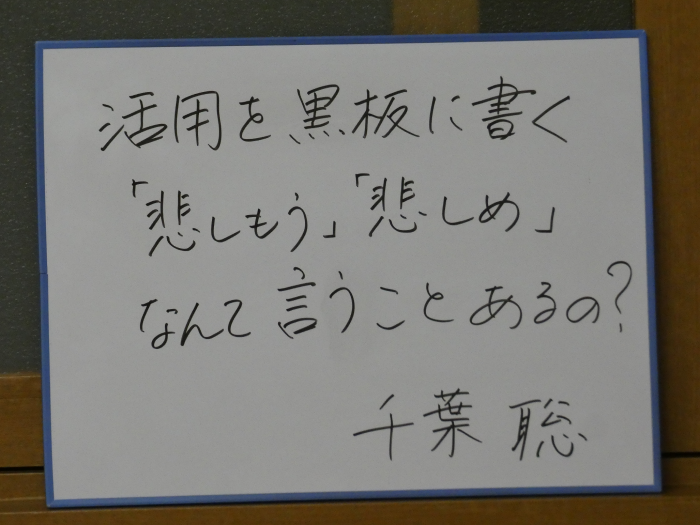 活用を黒板に書く
「悲しもう」「悲しめ」
なんて言うことあるの？
千葉聡